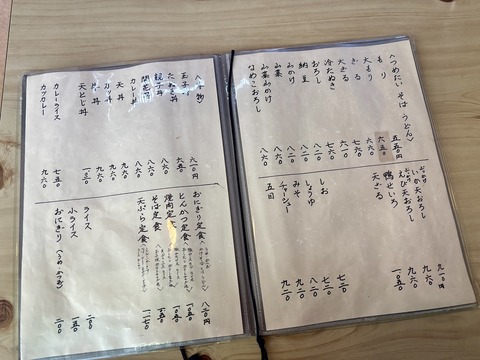 〈つめたい そば うどん〉
もり 五五〇円
大もり 六五〇
ざる 六六〇
大ざる 七六〇
冷たぬき 六一〇
おろし 七六〇
納豆 八一〇
山かけ 八一〇
山菜 八一〇
山菜山かけ 八六〇
なめこおろし 八六〇
いか天おろし 九一〇
えび天おろし 九六〇
鴨せいろ 九六〇
天ざる 一〇五〇
しお 七二〇
しょうゆ 七二〇
みそ 八二〇
チャーシュー 九二〇
五目 九二〇
〈丼物〉
玉子丼 六一〇円
たぬき丼 六五〇
親子丼 八六〇
開花丼 八六〇
カレー丼 八六〇
天丼 九六〇
カツ丼 九六〇
丼 九六〇
天とじ丼
カレーライス 七五〇
カツカレー 九六〇
おにぎり定食 八二〇円
とんかつ定食 一〇五〇
焼肉定食 一〇五〇
そば定食 一〇五〇
天ぷら定食 一一七〇
ライス 二〇〇
小ライス 一五〇
おにぎり（うめ・かつお） 二〇〇